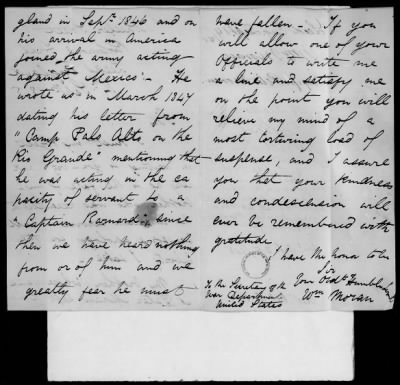 gland in Sept. 1846 and on
his arrival in America
joined the army acting
against Mexico - He
wrote us in March 1847
dating his letter from
"Camp Palo Alto, on the
Rio Grande" mentioning that
he was acting in the ca
pacity of servant to a
"Captain Barnard"; since
then we have heard nothing
from or of him and we
greatly fear he must
have fallen - If you
will allow one of your
Officials to write me
a line and satisfy me
on the point you will
relieve my mind of a
most torturing load of
suspense, and I assure
you that your kindness
and condescension will
ever be remembered with
gratitude.
I have the honor to be
Sir
Your Obdt. Humble
Wm Moran
To the Secretary of the
War Department
United States